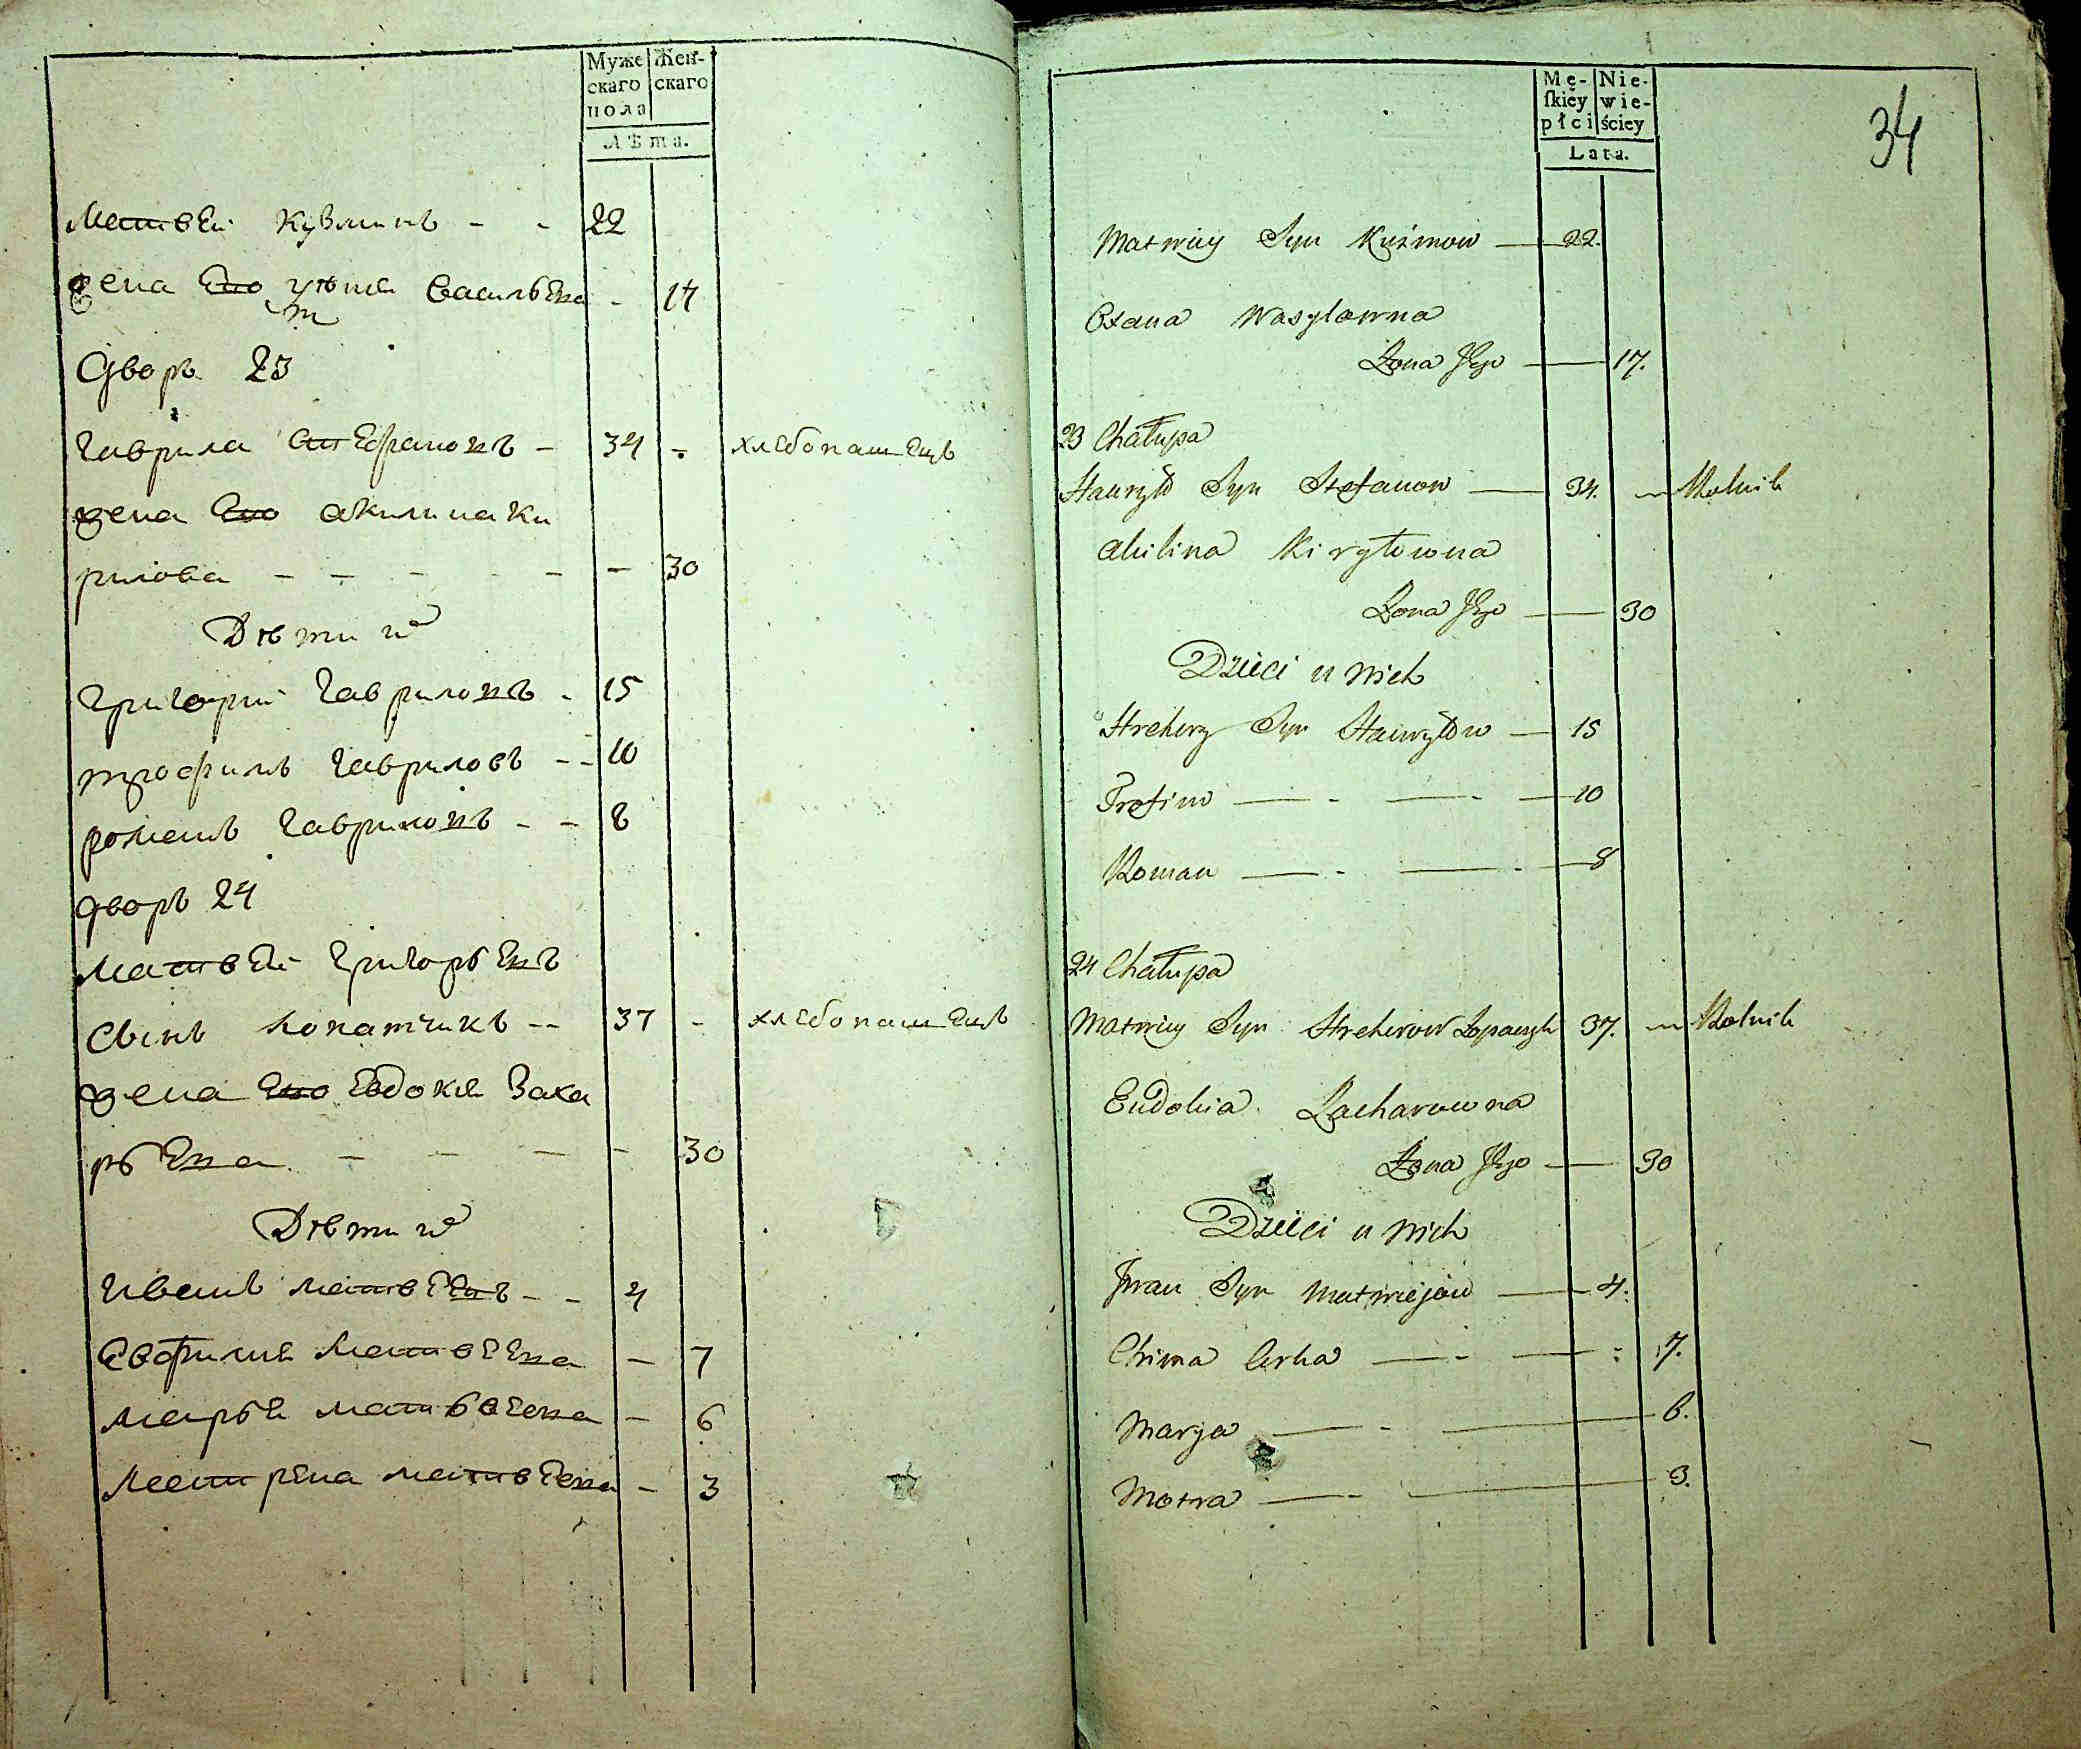 Муже
скаго
пола
Жен-
скаго
Лѣта.
Матвей Кузминъ - - 22
жена Его Васильева - 17
Дворъ 23
Гаврила Стефановъ - 34 - хлебопашецъ
жена Его Акилина Ки
рилова - - - - - - 30
Дѣти их
Григорий Гавриловъ - 15
Трофимъ Гавриловъ - - 10
Романъ Гавриловъ - - 8
дворъ 24
Матвей Григорьевъ
Сынъ Лопатчикъ - - 37 - хлебопашецъ
жена Его Евдокия Заха
рьева - - - - 30
Дѣти их
Иванъ Матвеевъ - - 4
Евфимия Матвеева - 7
Марья Матвеева - 6
Матрена Матвеева - 3
34
Mę-
skiey
płci
Nie-
wie-
ściey
Lata.
Matwiey Syn Kuźmow — 22.
Wasylowna
Żona Jego — 17.
23 Chałupa
Hawryło Syn Stefanow — 34. — Rolnik
Akilina Kiryłowna
Żona Jego — 30
Dzieci u nich
Hrehory Syn Hawryłow — 15
Trofim — - — - — 10
Roman — - — - — 8
24 Chałupa
Matwiey Syn Hrehorow Łopaczyk 37. — Rolnik
Eudokia Zacharowna
Żona Jego — 30
Dzieci u nich
Jwan Syn Matwiejow — 4.
Chima Corka — - — : 7.
Marya — - — 6.
Motra — - — 3.